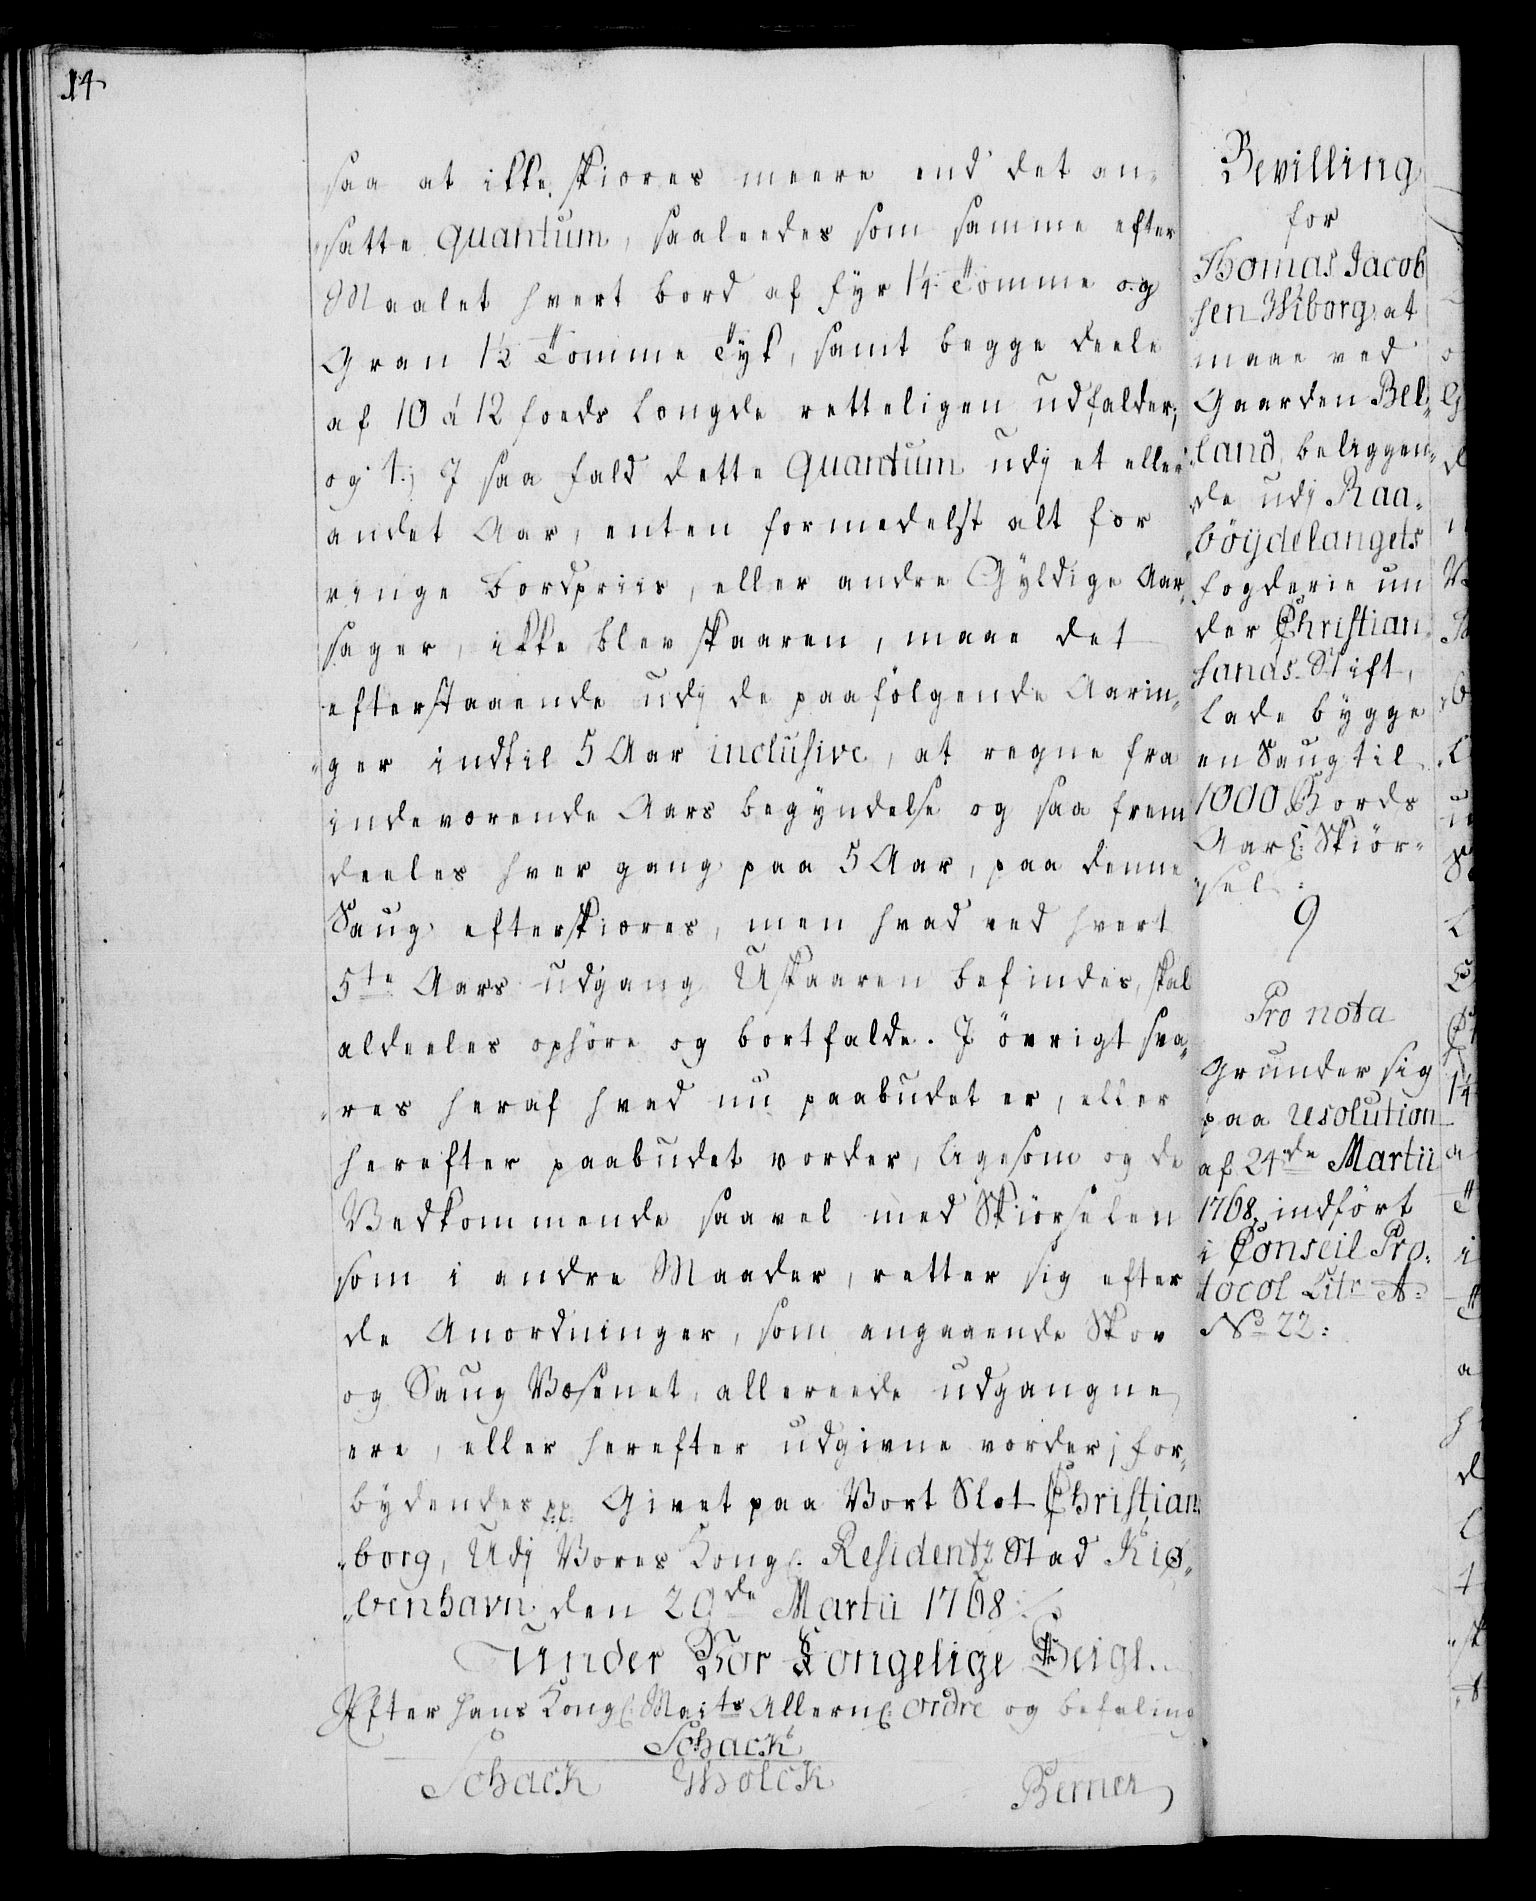 14
saa at ikke skiæres meere end det an-
satte quantum, saaleedes som samme efter
Maalet hvert bord af fyr 1¼ Tomme og
Gran 1½ Tomme Tyk, samt begge deele
af 10 á 12 foeds Længde retteligen udfalder;
og 4.) J saa fald dette quantum udj et eller
andet Aar, enten formedelst alt for
ringe bordpriis, eller andre Gyldige Aar-
sager, ikke blev skaaren, maae det
efterstaaende udj de paafölgende Aarin-
ger indtil 5 Aar inclusive, at regne fra
indeværende Aars begyndelse og saa frem
deeles hver gang paa 5 Aar, paa denne
Saug efterskiæres, men hvad ved hvert
5te Aars udgang Uskaaren befindes, skal
aldeeles ophöre og bortfalde. J övrigt sva-
res heraf hvad nu paabudet er, eller
herefter paabudet vorder, ligesom og de
Vedkommende saavel med Skiörselen
som i andre Maader, retter sig efter
de Anordninger, som angaaende Skov
og Saug Væsenet, allereede udgangne
ere, eller herefter udgivne vorder; for-
bydendes p.p. Givet paa Vort Slot Christian
borg, Udj Vores Kongl. Residentz Stad Kiø-
benhavn den 29de Martii 1768
under Vor Kongelige Seigl.
Efter Hans Kongl: Maits Allernl: ordre og befaling
Schack
Schack Gholck Berner
Bevilling
for
Thomas Jacob
sen Wiborg at
maae ved
Gaarden Bel-
land beliggen-
de udj Raa-
böijdelangets
fogderie un
der Christian
sands Stift,
lade bygge
en Saug til
1000 Bords
Aarl: Skiör-
sel:
9
Pro nota
grunder sig
paa resolution
af 24de Martii
1768, indfört
i Conseil Pro-
tocol Litr A:
No 22: